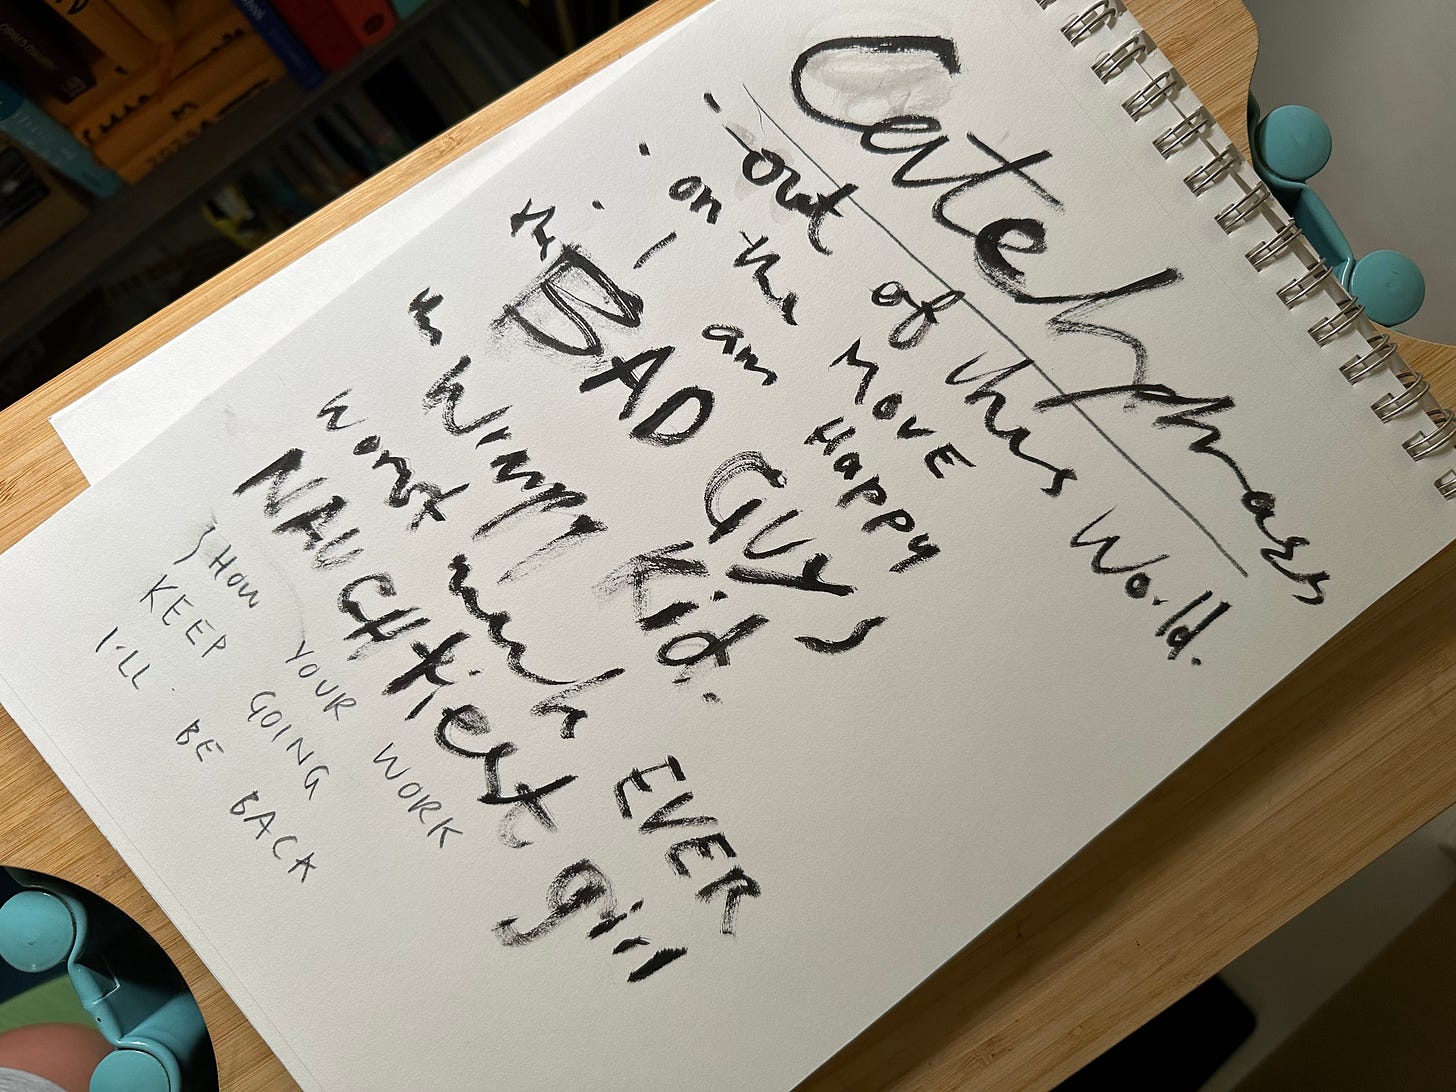 Catchphrases
- out of this World.
- on the MOVE
- I am Happy
the BAD GUYS
the Wimpy Kid.
worst week EVER
NAUGHTiest girl
SHOW YOUR WORK
KEEP GOING
I'LL BE BACK